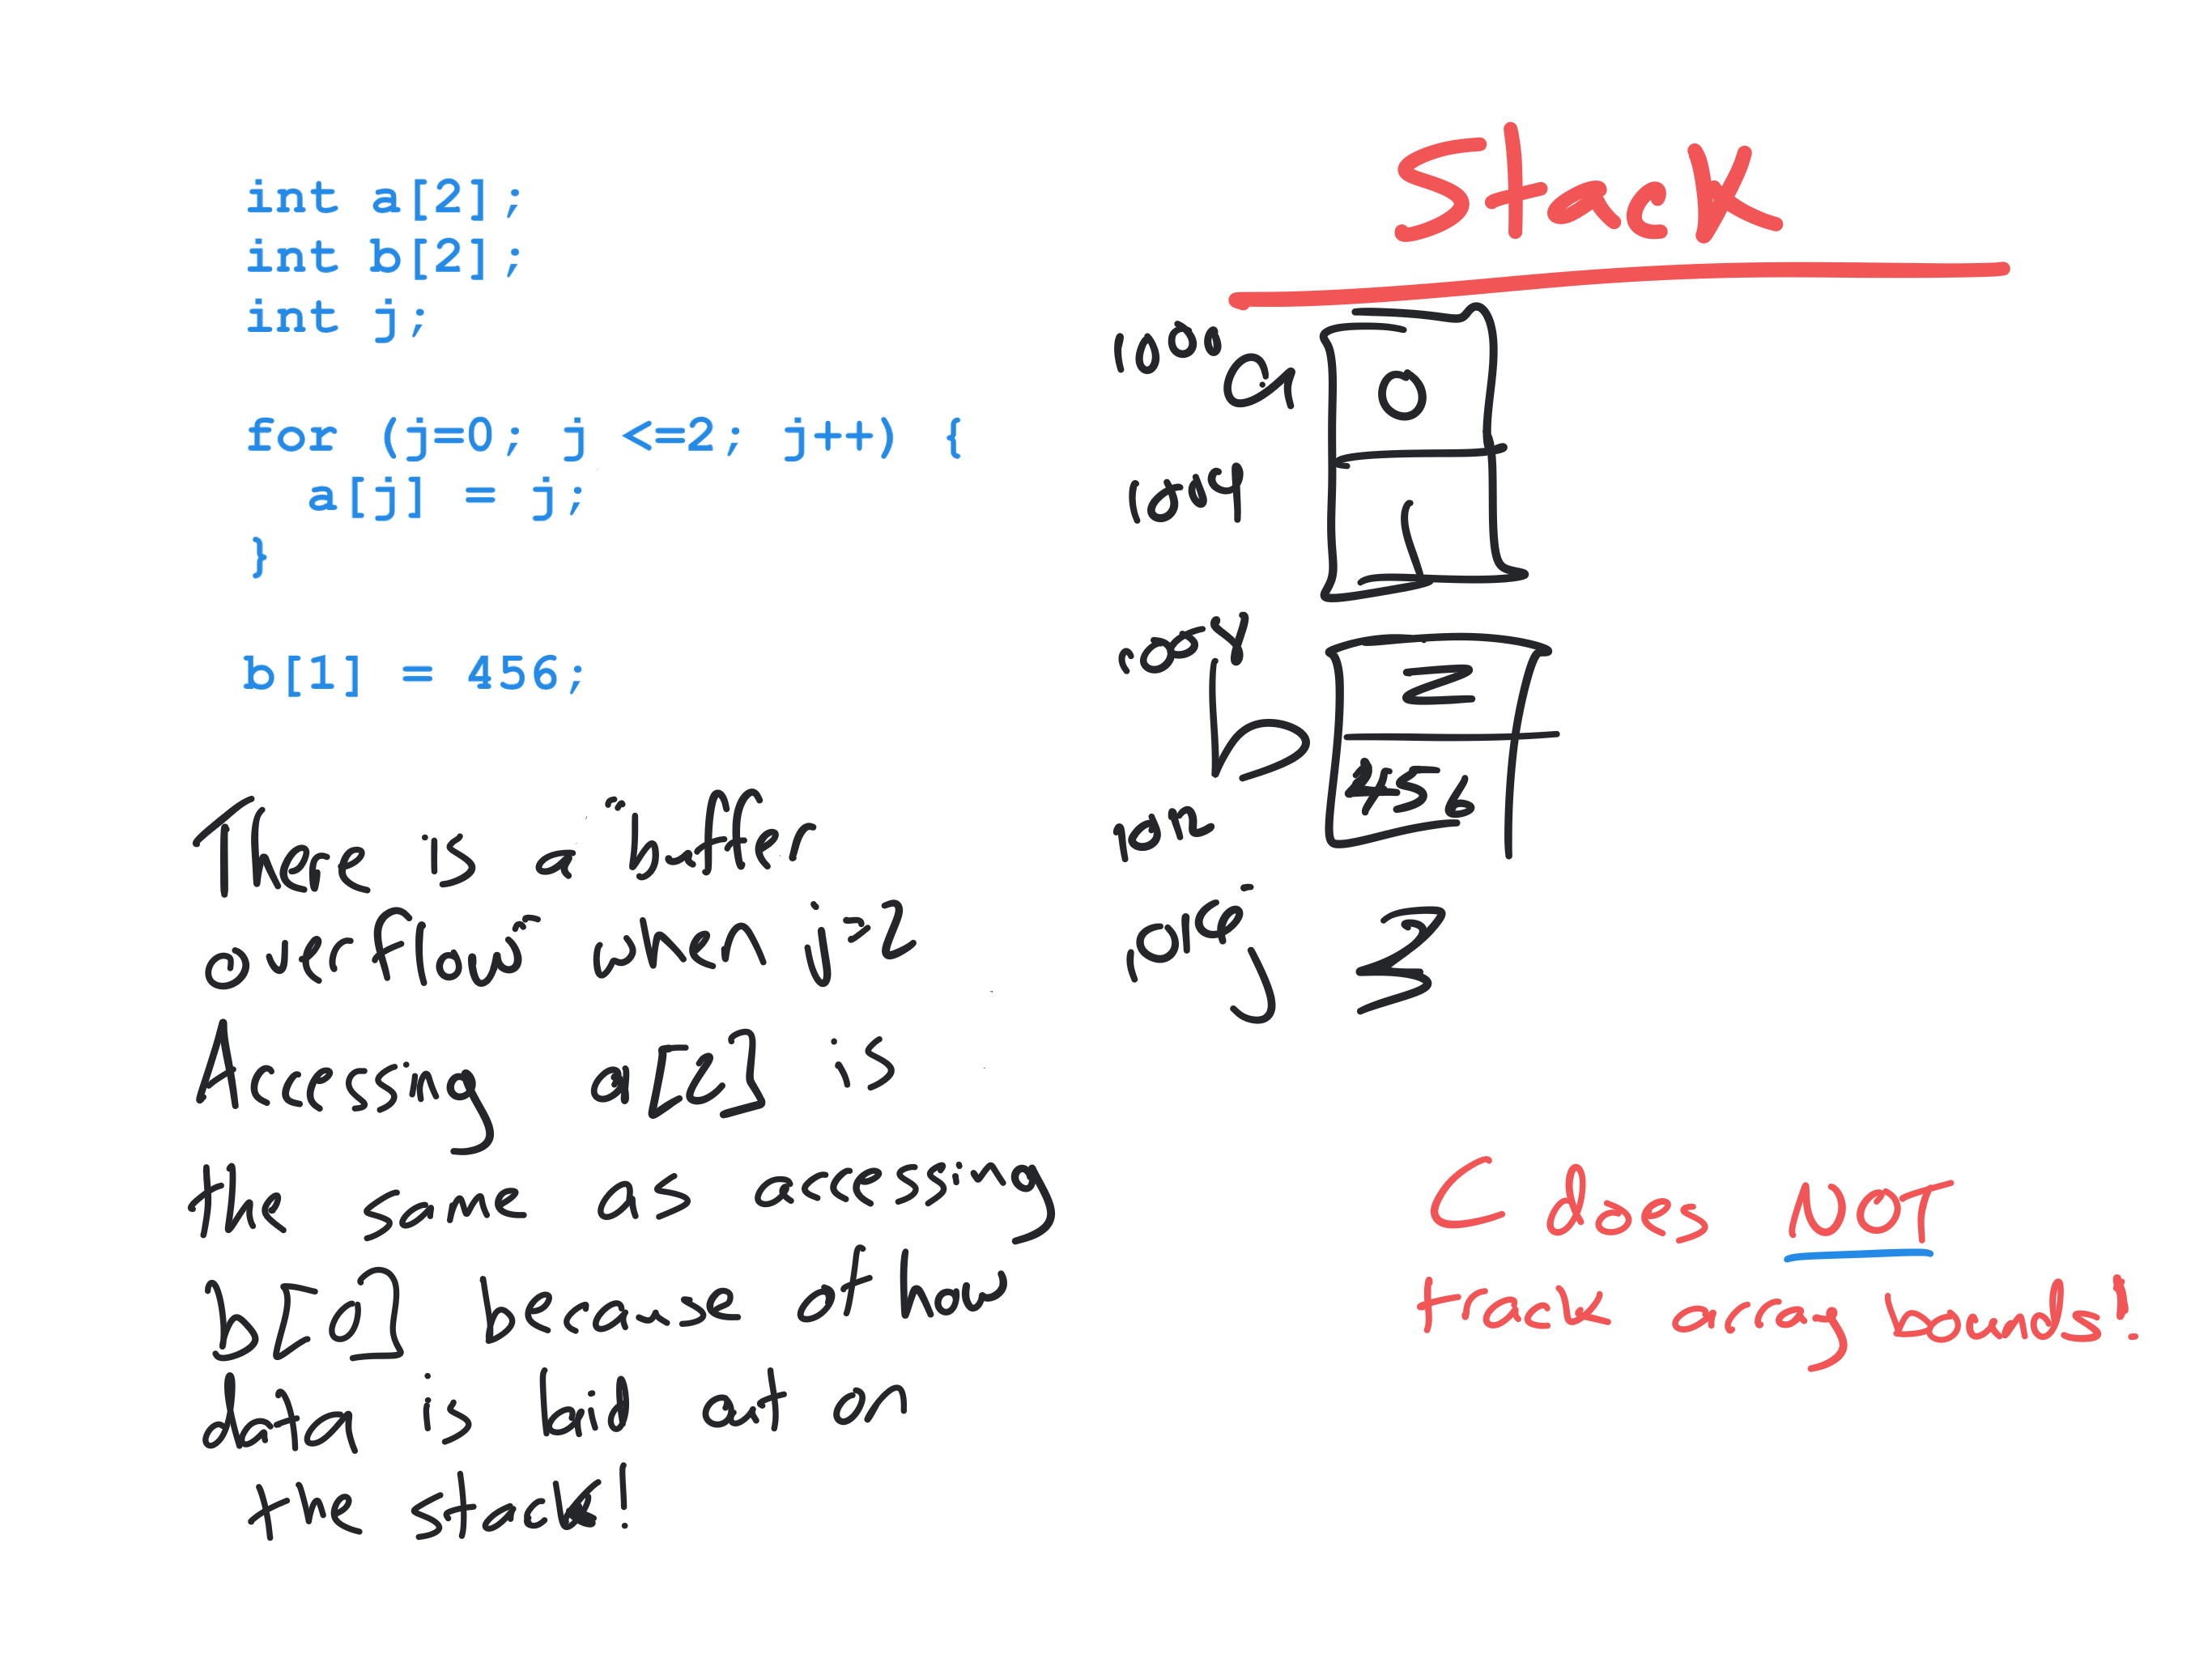 int a[2];
int b[2];
int j;
for (j=0; j <=2; j++) {
a[j] = j;
}
b[1] = 456;
There is a "buffer
overflow" when j=2
Accessing a[2] is
the same as accessing
b[0] because of how
data is laid out on
the stack!
Stack
1000
a
0
1004
1
1008
b
2
456
1012
1016
j
3
C does NOT
track array bounds!